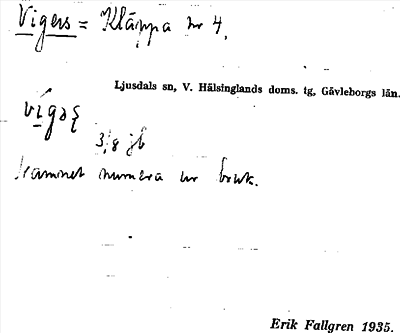 Vigers = Kläppa nr 4.
Ljusdals sn, V. Hälsinglands doms. tg, Gävleborgs län.
3/8 jb
namnet numera ur bruk.
Erik Fallgren 1935.